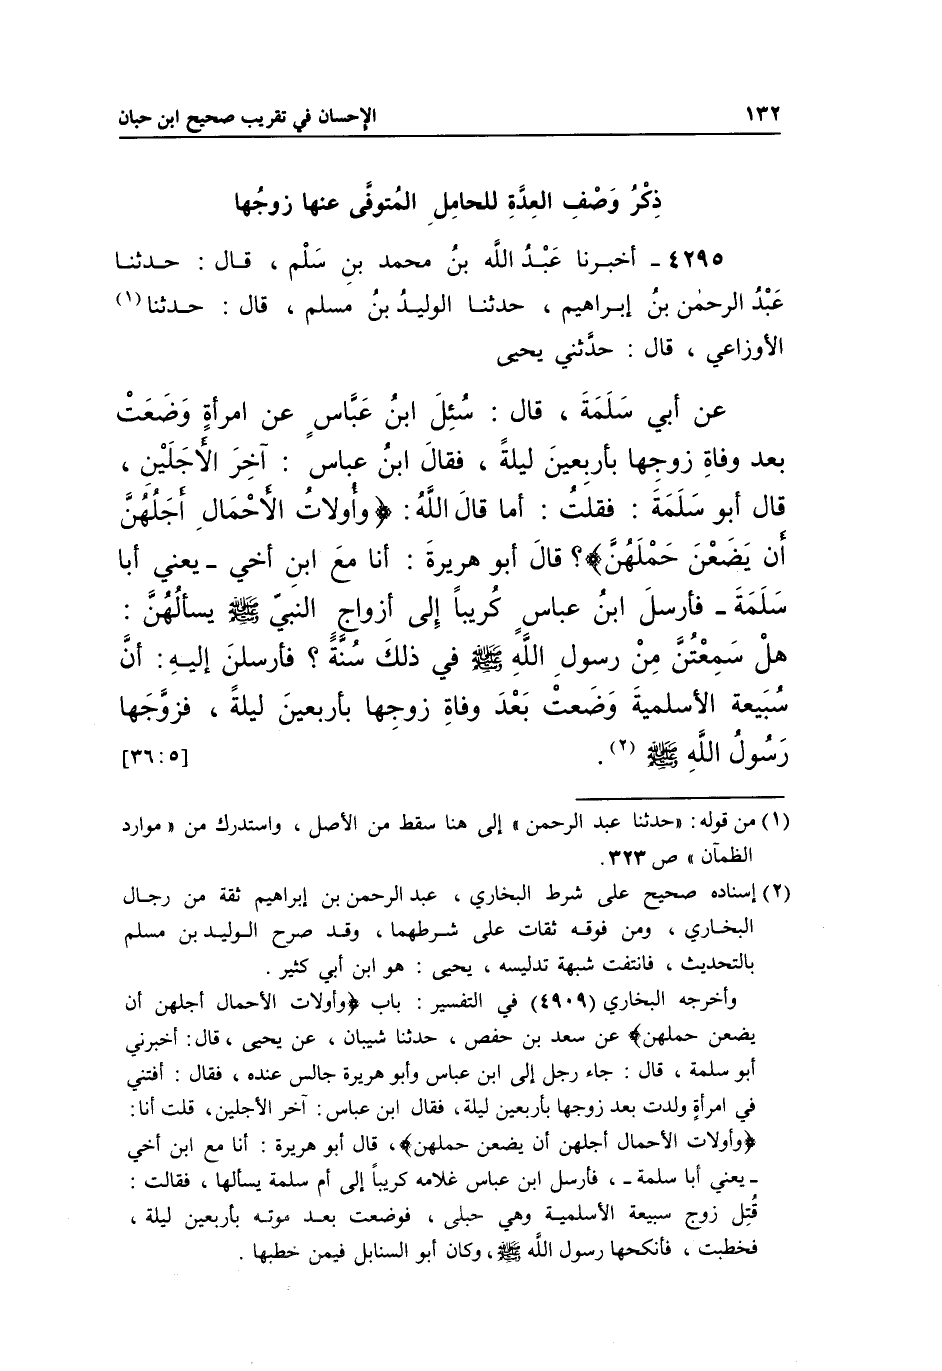 ١٣٢ الإحسان في تقريب صحيح ابن حبان
ذِكْرُ وَصْفِ العِدَّةِ للحامِلِ المُتوفَّى عنها زوجُها
٤٢٩٥ ـ أخبرنا عَبْدُ اللَّه بنُ محمد بنِ سَلْم ، قال : حدثنا
عَبْدُ الرحمٰن بنُ إبراهيم ، حدثنا الوليدُ بنُ مسلم ، قال : حدثنا(١)
الأوزاعي ، قال : حدَّثني يحيى
عن أبي سَلَمَةَ ، قال : سُئِلَ ابنُ عَبَّاسٍ عن امرأةٍ وَضَعَتْ
بعد وفاةِ زوجِها بأربعينَ ليلةً ، فقالَ ابنُ عباس : آخِرَ الأَجَلَيْنِ ،
قال أبو سَلَمَةَ : فقلتُ : أما قالَ اللَّهُ : ﴿وأُولاتُ الأَحْمَالِ أَجَلُهُنَّ
أَن يَضَعْنَ حَمْلَهُنَّ﴾؟ قالَ أبو هريرةَ : أنا معَ ابنِ أخي ـ يعني أبا
سَلَمَةَ ـ فأرسلَ ابنُ عباسٍ كُريباً إلى أزواجِ النبيّ ﷺ يسألُهُنَّ :
هلْ سَمِعْتُنَّ مِنْ رسولِ اللَّهِ ﷺ في ذلكَ سُنَّةً ؟ فأرسلنَ إليهِ : أنَّ
سُبَيعة الأسلميةَ وَضَعتْ بَعْدَ وفاةِ زوجِها بأربعينَ ليلةً ، فزوَّجَها
رَسُولُ اللَّهِ ﷺ (٢) . [٣٦:٥]
(١) من قوله : «حدثنا عبد الرحمن» إلى هنا سقط من الأصل ، واستدرك من «موارد
الظمآن» ص ٣٢٣ .
(٢) إسناده صحيح على شرط البخاري ، عبد الرحمن بن إبراهيم ثقة من رجال
البخاري ، ومن فوقه ثقات على شرطهما ، وقد صرح الوليد بن مسلم
بالتحديث ، فانتفت شبهة تدليسه ، يحيى : هو ابن أبي كثير .
وأخرجه البخاري (٤٩٠٩) في التفسير : باب ﴿وأولات الأحمال أجلهن أن
يضعن حملهن﴾ عن سعد بن حفص ، حدثنا شيبان ، عن يحيى ، قال : أخبرني
أبو سلمة ، قال : جاء رجل إلى ابن عباس وأبو هريرة جالس عنده ، فقال : أفتني
في امرأةٍ ولدت بعد زوجها بأربعين ليلة ، فقال ابن عباس : آخر الأجلين ، قلت أنا :
﴿وأولات الأحمال أجلهن أن يضعن حملهن﴾ ، قال أبو هريرة : أنا مع ابن أخي
ـ يعني أبا سلمة ـ ، فأرسل ابن عباس غلامه كريباً إلى أم سلمة يسألها ، فقالت :
قُتِل زوج سبيعة الأسلمية وهي حبلى ، فوضعت بعد موته بأربعين ليلة ،
فخطبت ، فأنكحها رسول اللَّه ﷺ ، وكان أبو السنابل فيمن خطبها .